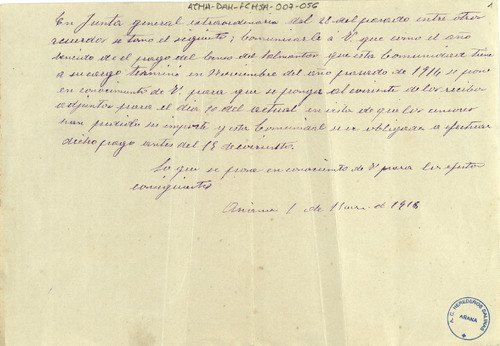 ATHA-DAH-ACHSA-007-056
1
En Junta general extraordinaria del 22 del pasado entre otros
acuerdos se tomo el siguiente; Comunicarle a V. que como el año
del pago del censo del que esta Comunidad tiene
a su cargo termino en Noviembre del año pasado de 1914 se pone
en conocimiento de V. para que se ponga al corriente de los recibos
adjuntos para el dia 10 del actual en vista de que los
han pedido su importe y esta Comunidad se ve obligada a efectuar
dicho pago antes del 15 de corriente.
Lo que se pone en conocimiento de V. para los efectos
consiguientes
Añana 1 de de 1916
A. C. HEREDEROS SALINAS
AÑANA